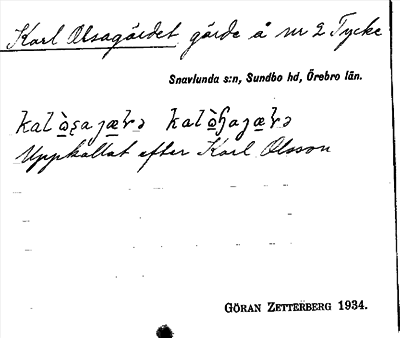 Karl Olsagärdet gärde å nr 2 Tycke
Snavlunda s:n, Sundbo hd, Örebro län.
Uppkallat efter Karl Olsson
GÖRAN ZETTERBERG 1934.